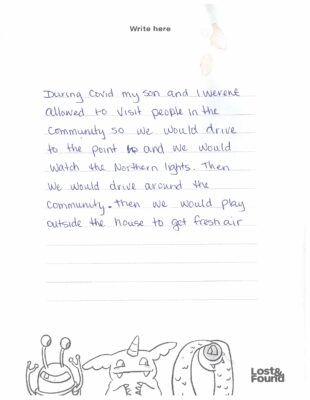 Write here
During Covid my son and I werent
allowed to visit people in the
community so we would drive
to the point and we would
watch the Northern lights. Then
we would drive around the
community. then we would play
outside the house to get fresh air
Lost&
Found